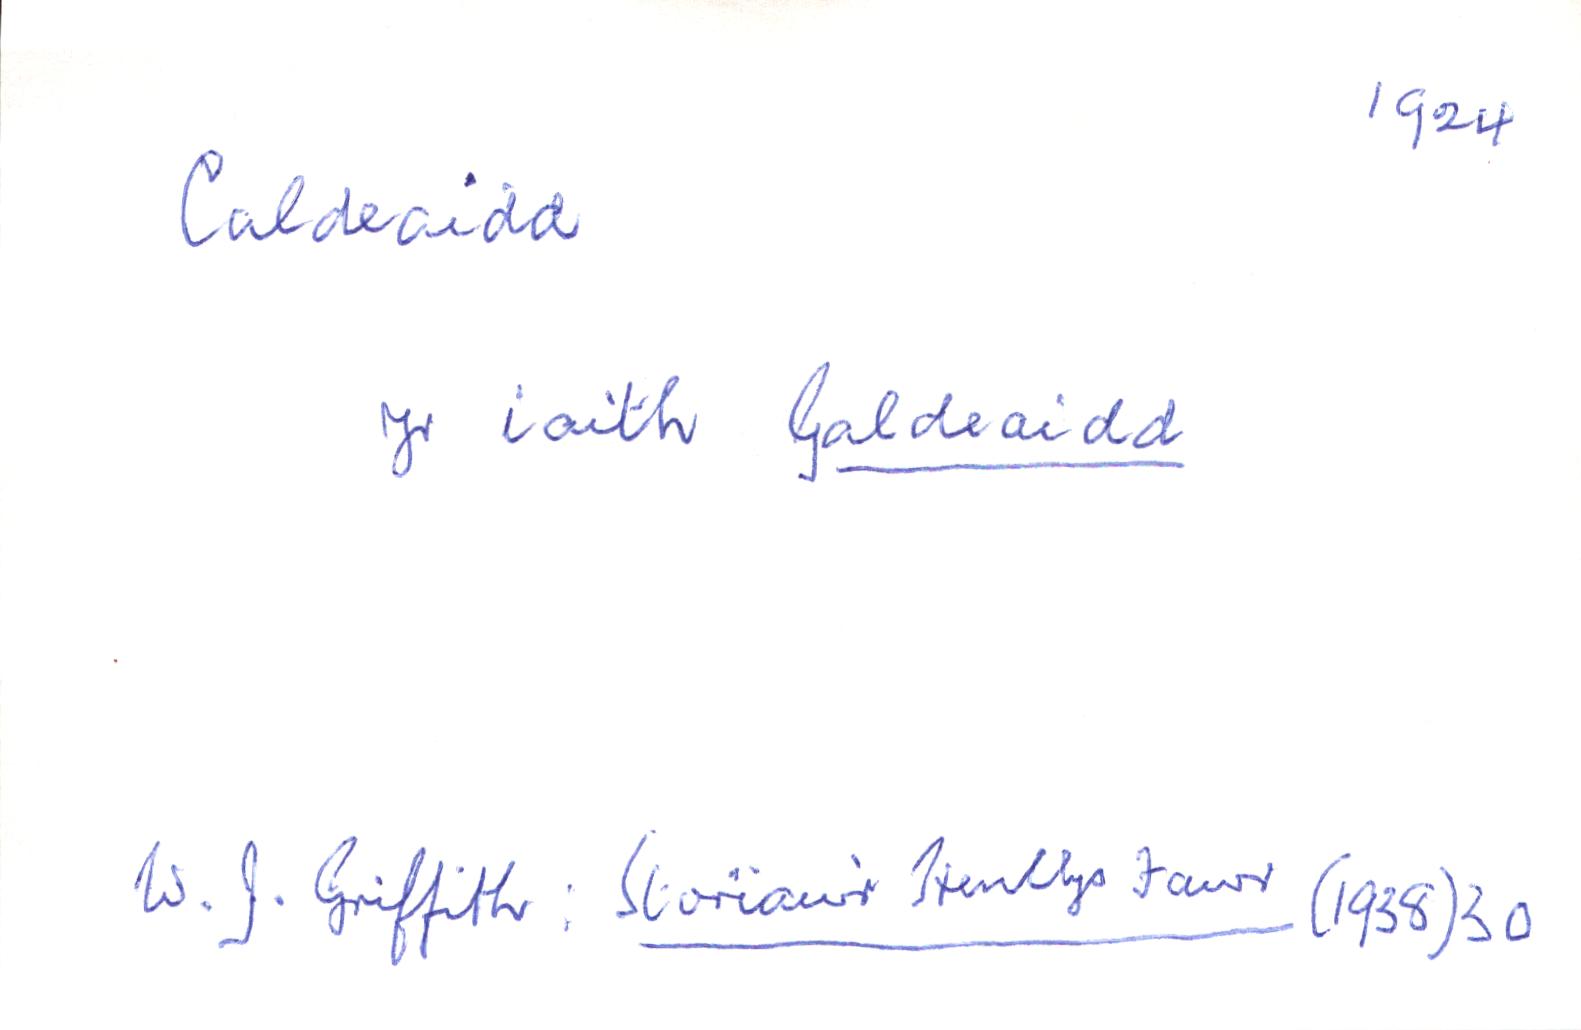 1924
Caldeaidd
yr iaith Galdeaidd
W. J. Griffith: Storïau'r Henllys Fawr (1938) 30